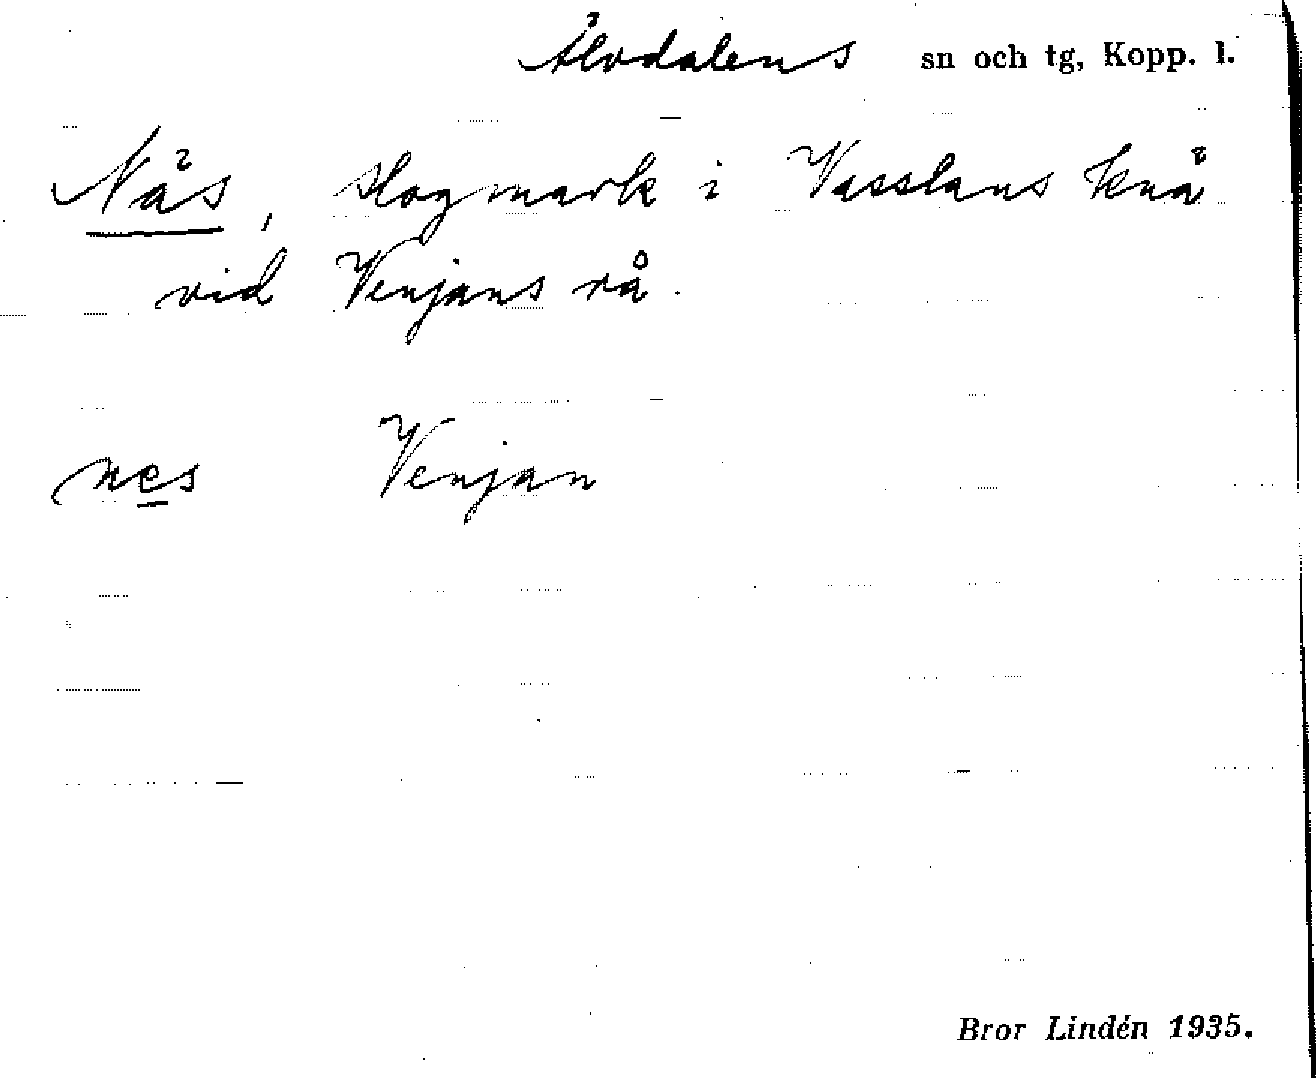 Älvdalens sn och tg, Kopp. l.
Nås, skogmark i Vasslans knå
vid Venjans rå.
nes Venjan
Bror Lindén 1935.